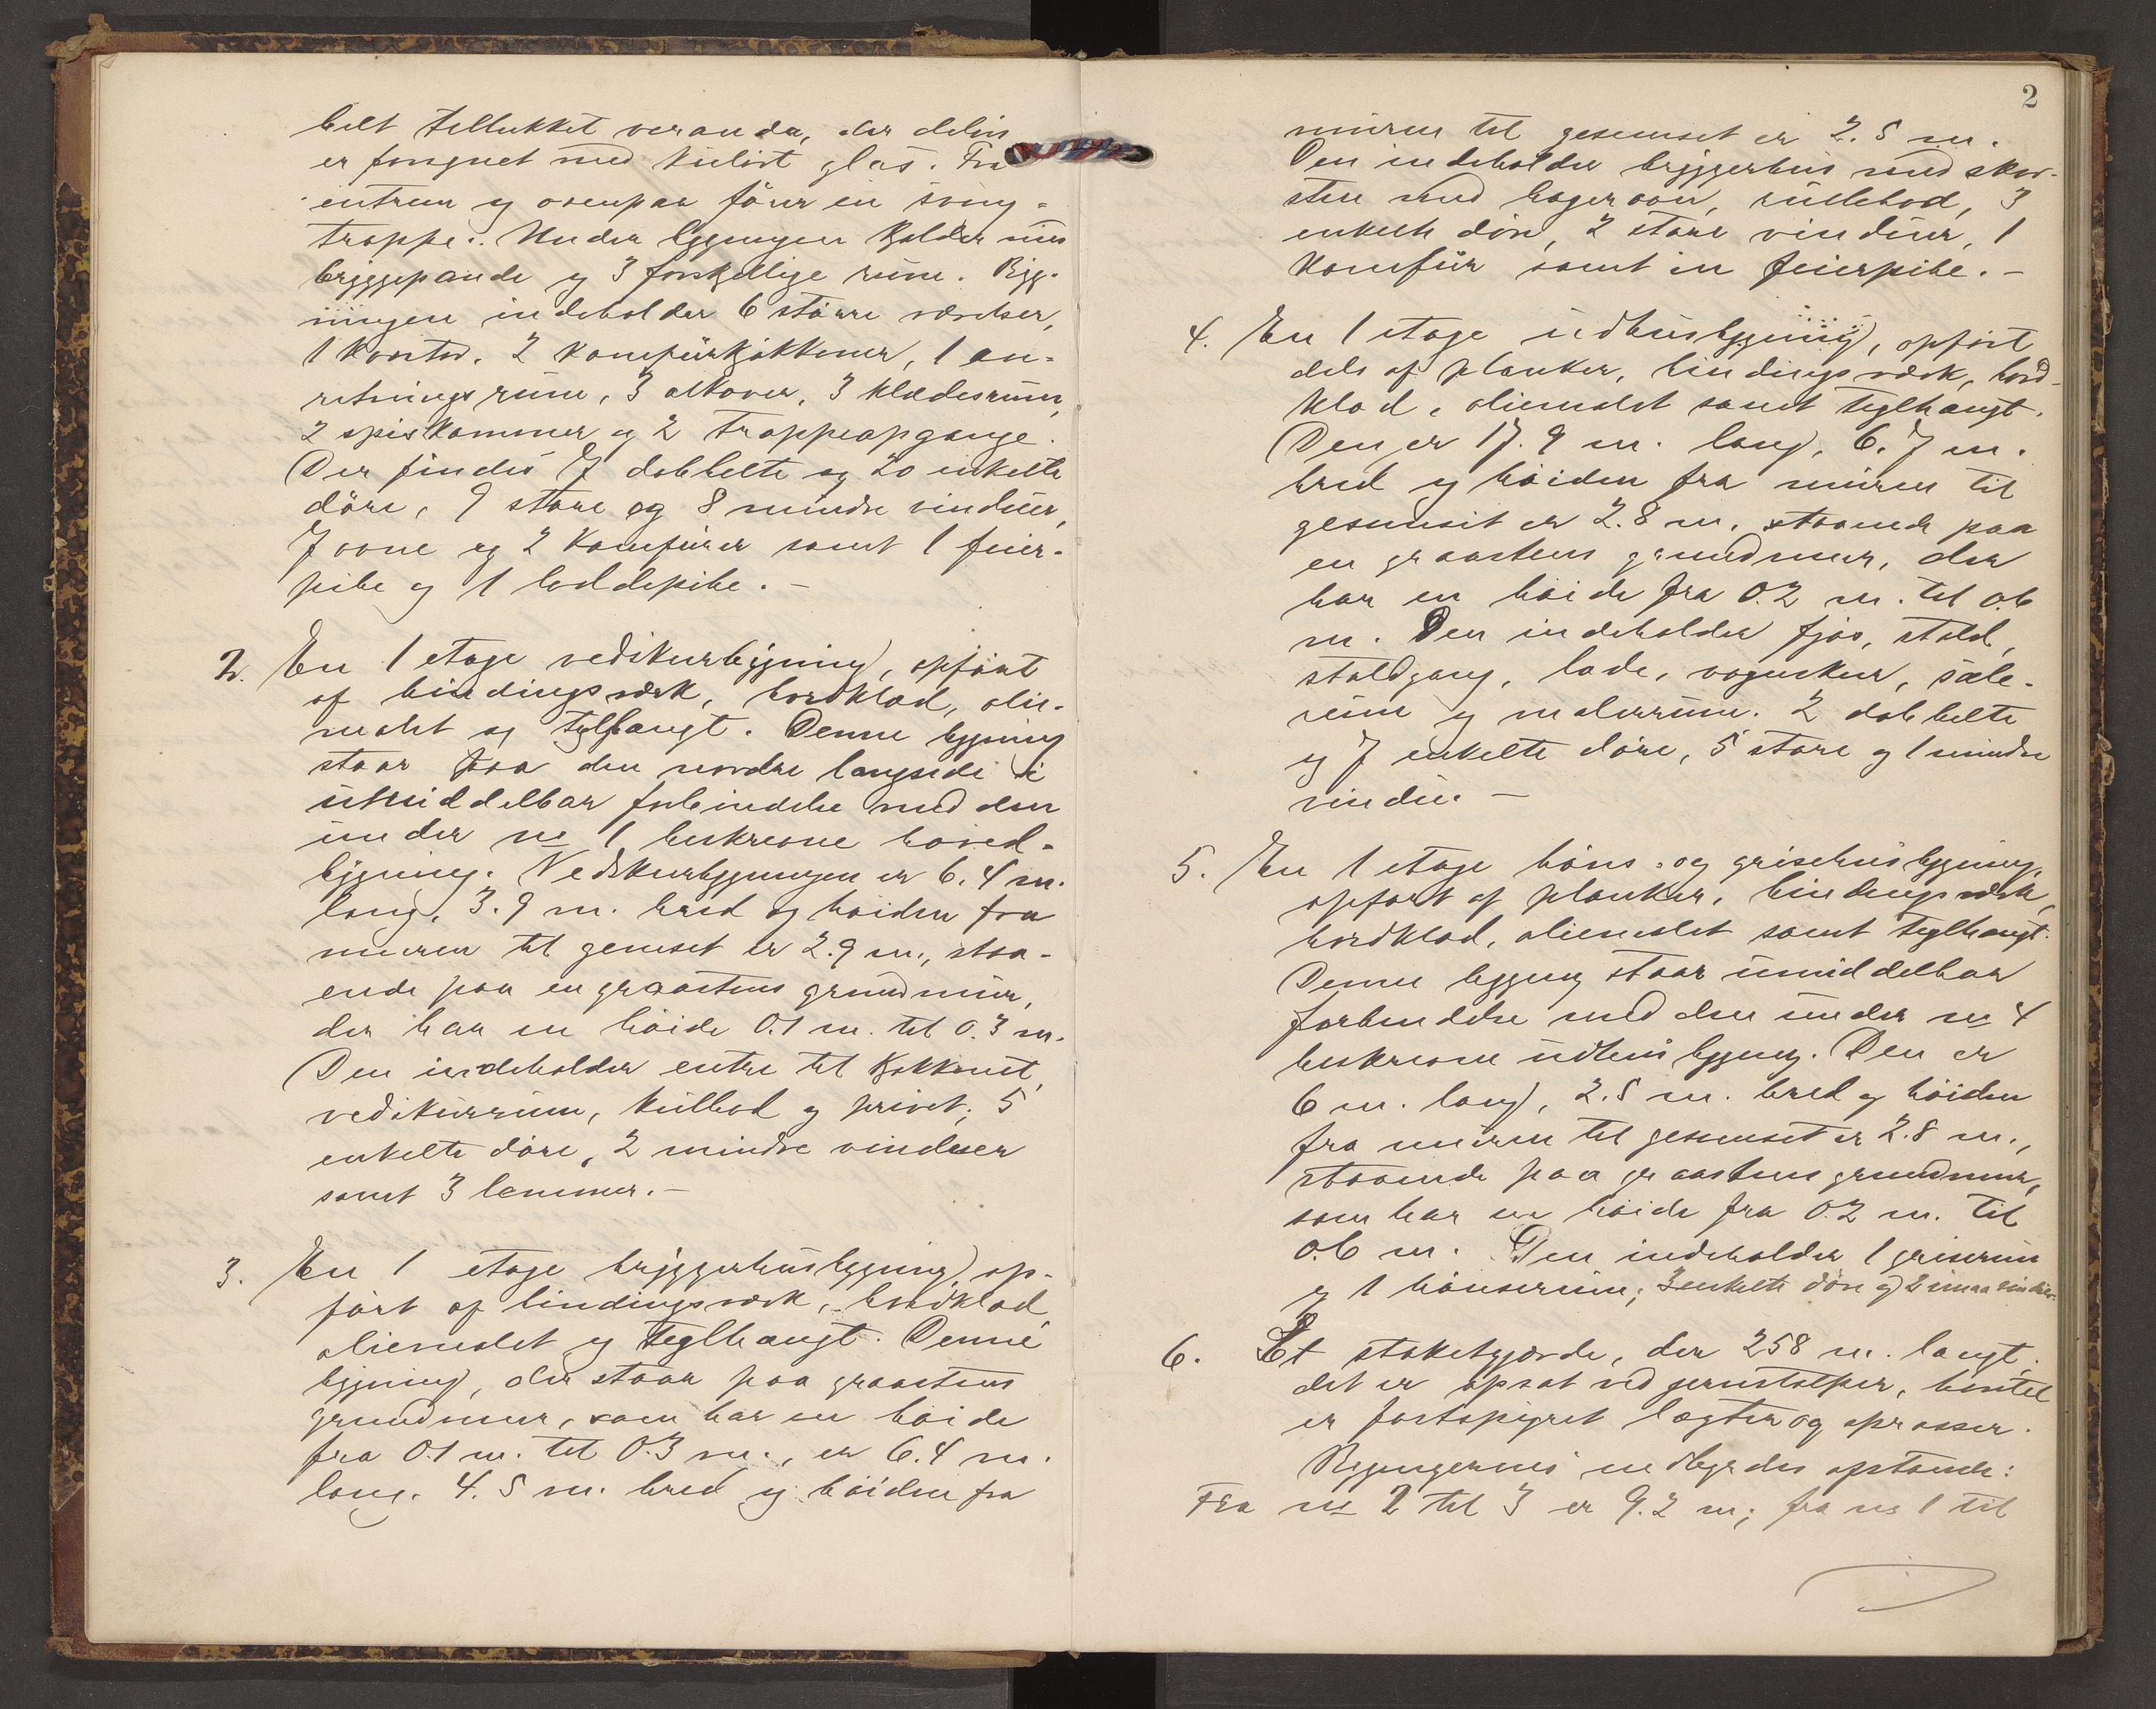 helt tellukket veranda, der delvis
er forsynet med kulört glas. Fra
entreen og ovenpaa förer en sving-
trappe. Under bygningen kjelder med
bryggepande og 3 forskjellige rum. Byg-
ningen indeholder 6 större værelser,
1 kontor, 2 komfürkjökkener, 1 an-
retningsrum, 3 alkover, 3 klædesrum,
2 spiskammer og 2 trappeopgange.
Der findes 7 dobbelte og 20 enkelte
döre, 9 store og 8 mindre vinduer,
7 ovne og 2 komfürer samt 1 feier-
pibe og 1 loddepibe. –
2. En 1 etage vedskurbygning, opfört
af bindingsverk, bordklæd, olie-
malet og teglhængt. Denne bygning
staar paa den nordre langside i
umiddelbar forbindelse med den
under no 1 beskrevne hoved-
bygning. Vedskurbygningen er 6.4 m.
lang, 3.9 m. bred og höiden fra
muren til gemset er 2.9 m., staa-
ende paa en graastens grundmur,
der har en höide 0.1 m. til 0.3 m.
Den indeholder entre til kjøkkenet,
vedskurrum, kulbod og privet, 5
enkelte döre, 2 mindre vinduer
samt 3 lemmer. –
3. En 1 etage bryggerhusbygning, op-
fört af bindingsværk, bordklæd,
oliemalet og teglhængt. Denne
bygning, der staar paa graastens
grundmur, som har en höide
fra 0.1 m. til 0.3 m., er 6.4 m.
lang, 4.5 m. bred og höiden fra
2
muren til gesemset er 2.5 m.
Den indeholder bryggerhus med skor-
sten med bagerovn, rullebod, 3
enkelte döre, 2 store vinduer, 1
komfür samt en feierpibe. –
4. En 1 etage udhusbygning, opfört
dels af planker, bindingsværk, bord-
klæd, oliemalet samt teglhængt.
Den er 17.9 m. lang, 6.7 m.
bred og höiden fra muren til
gesemset er 2.8 m. staaende paa
en graastens grundmur, der
har en höide fra 0.2 m. til 0.6
m. Den indeholder fjøs, stald,
staldgang, lade, vognskur, sæle-
rum og melerrum. 2 dobbelte
og 7 enkelte döre, 5 store og 1 mindre
vindue. –
5. En 1 etage höns- og grisehusbygning,
opført af planker, bindingsværk,
bordklæd, oliemalet samt teglhængt.
Denne bygning staar umiddelbar
forbindelse med den under no 4
beskrevne udhusbygning. Den er
6 m. lang, 2.5 m. bred og höiden
fra muren til gesemset er 2.8 m.,
staaende paa graastens grundmur,
som har en höide fra 0.2 m. til
0.6 m. Den indeholder 1 griserum
og 1 hönserum; 3 enkelte döre og 2 smaa vinduer.
6. Et staketgjærde, der 258 m. langt;
det er opsat ved jernstolper, hvortil
er fastspigret lægter og sprosser.
Bygningernes indbyrdes afstande:
Fra no 2 til 3 er 9.2 m; fra no 1 til